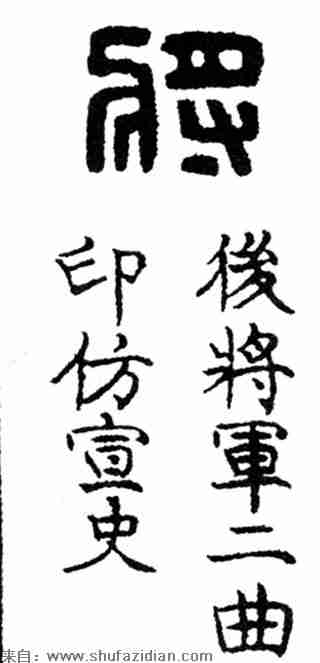 後將軍二曲
印仿宣史
来自：www.shufazidian.com